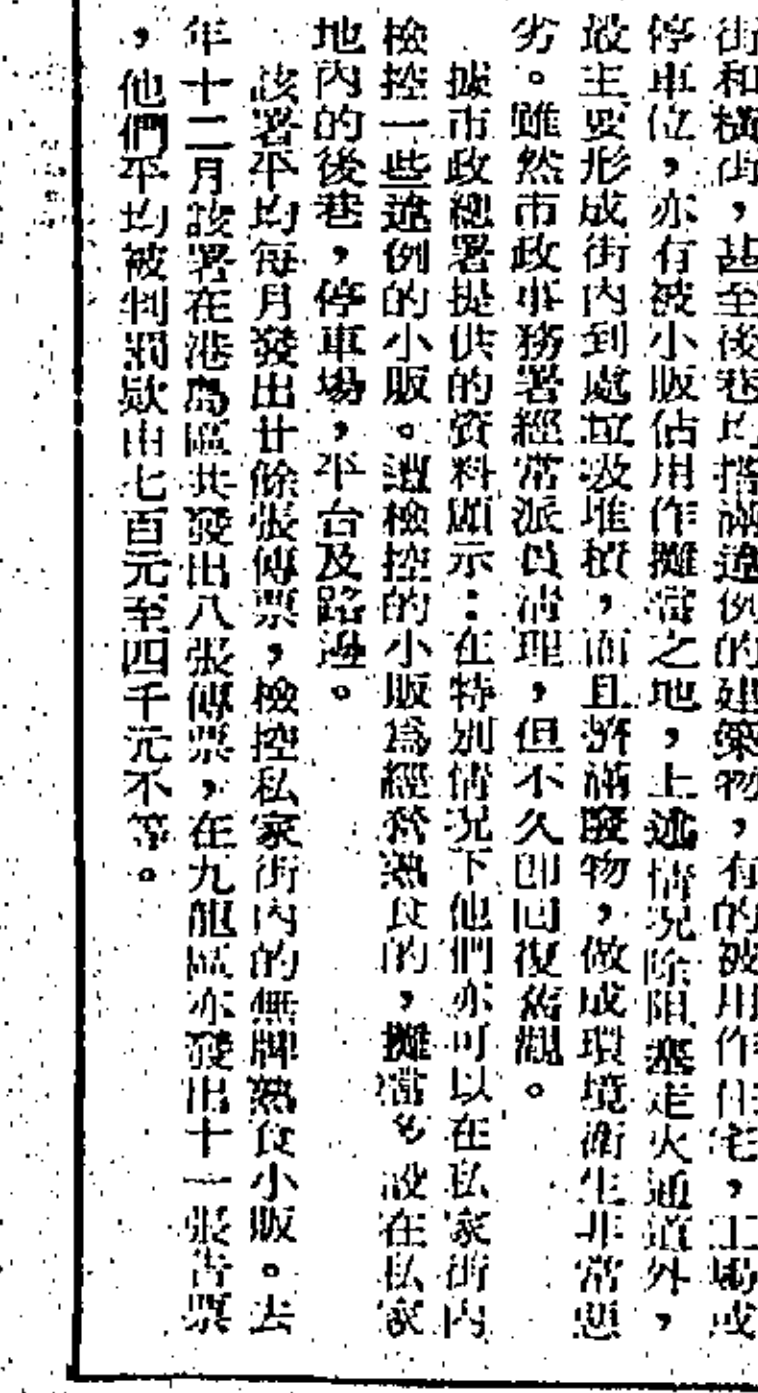 街和橫街，甚至後巷均搭滿違例的建築物，有的被用作住宅，工場或
停車位，亦有被小販佔用作攤檔之地，上述情況除阻塞走火通道外，
最主要形成街內到處垃圾堆積，而且擠滿廢物，做成環境衛生非常惡
劣。雖然市政事務署經常派員清理，但不久即回復舊觀。
據市政總署提供的資料顯示：在特別情況下他們亦可以在私家街內
檢控一些違例的小販。遭檢控的小販為經營熟食的，攤檔多設在私家
地內的後巷，停車場，平台及路邊。
該署平均每月發出廿餘張傳票，檢控私家街內的無牌熟食小販。去
年十二月該署在港島區共發出八張傳票，在九龍區亦發出十一張告票
，他們平均被判罰款由七百元至四千元不等。